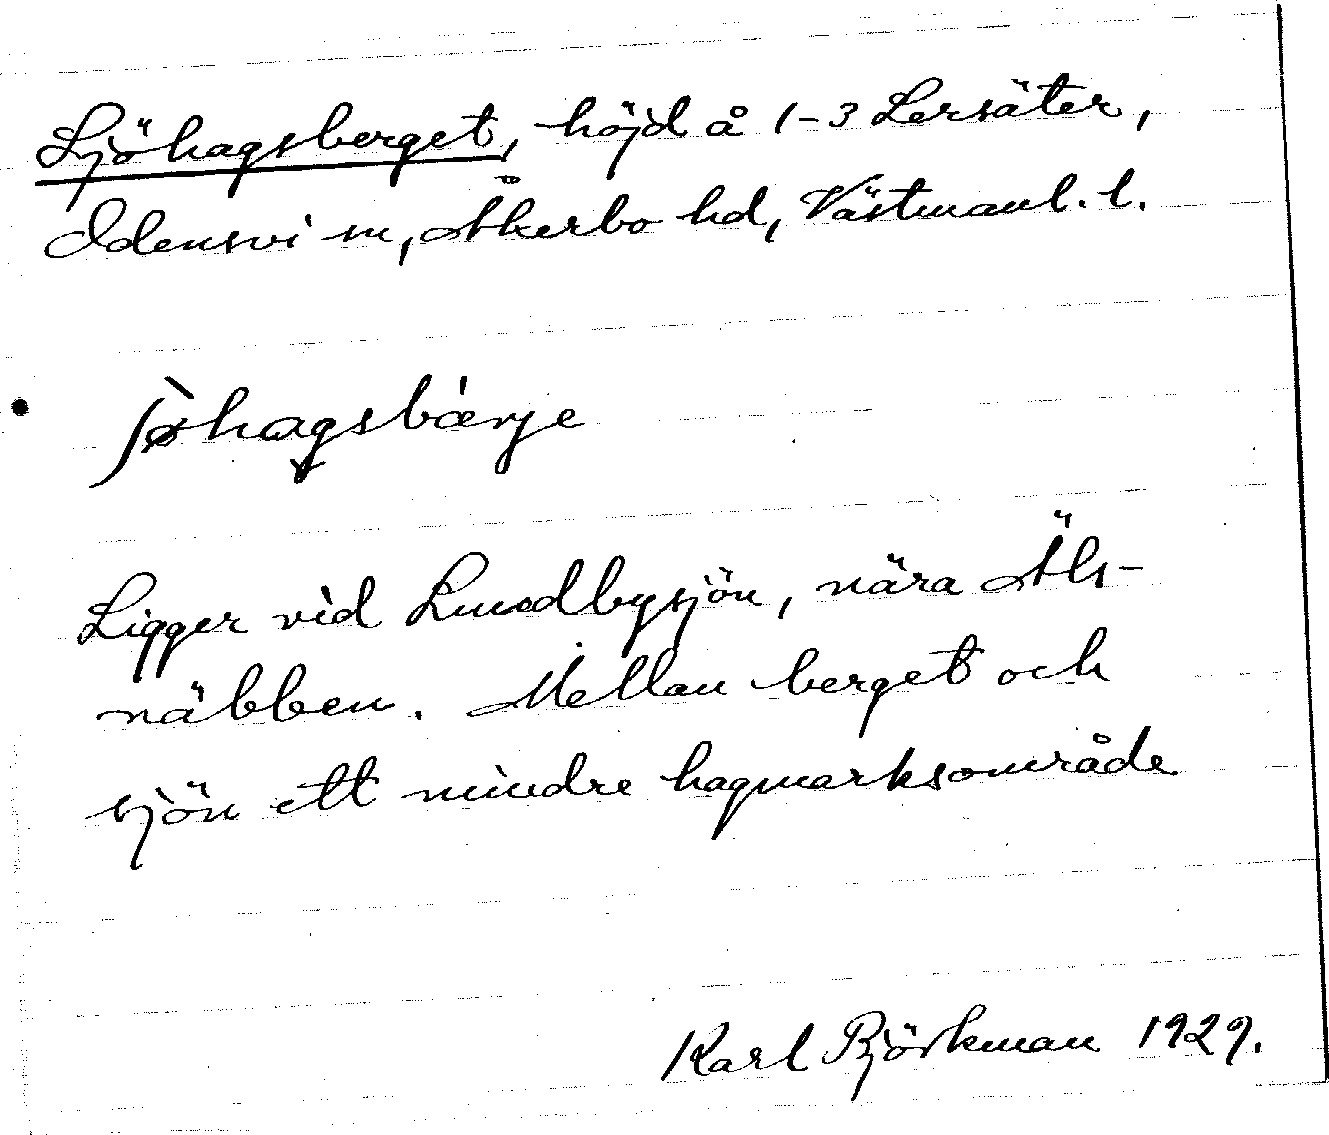 Sjöhagsberget, höjd å 1-3 Lersäter,
Odensvi sn, Åkerbo hd, Västmanl. l.
ʃø̀hagsbærje
Ligger vid Lundbysjön, nära Äls-
näbben. Mellan berget och
sjön ett mindre hagmarksområde
Karl Björkman 1929.